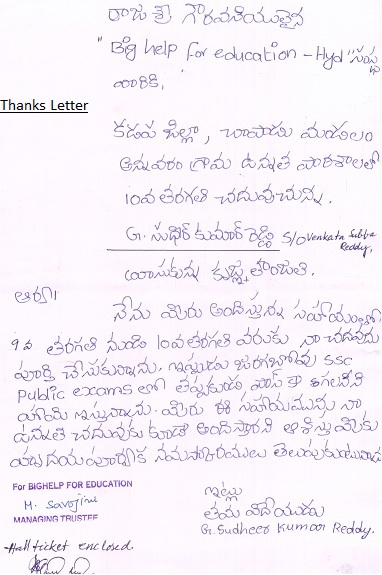 రాజ శ్రీ గౌరవనీయులైన
"Big help for education - Hyd" సంస్థ
వారికి,
Thanks Letter
కడప జిల్లా, చాపాడు మండలం
అన్నవరం గ్రామ ఉన్నత పాఠశాలలో
10వ తరగతి చదువుచున్న
G. సుధీర్ కుమార్ రెడ్డి S/o Venkata Subba
Reddy,
కృతజ్ఞతాంజలి.
ఆర్యా!
నేను మీరు అందిస్తున్న సహాయంతో
9వ తరగతి నుండి 10వ తరగతి వరుకు నా చదువును
పూర్తి చేసుకున్నాను. ఇప్పుడు జరగబోవు SSC
Public exams లో తప్పకుండ పాస్
హామి ఇస్తున్నాను. మీరు ఈ సహాయమును నా
ఉన్నతి చదువుకు కూడా అందిస్తారని ఆశిస్తు మీకు
హృదయపూర్వక నమస్కారములు తెలుపుకుంటున్నాను
For BIGHELP FOR EDUCATION
M. Sarojini
MANAGING TRUSTEE
ఇట్లు
తమ విదేయుడు
G. Sudheer Kumar Reddy.
-Hall ticket enclosed.